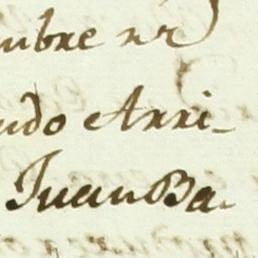 mbre nr
ndo Arri-
Juan Ba-